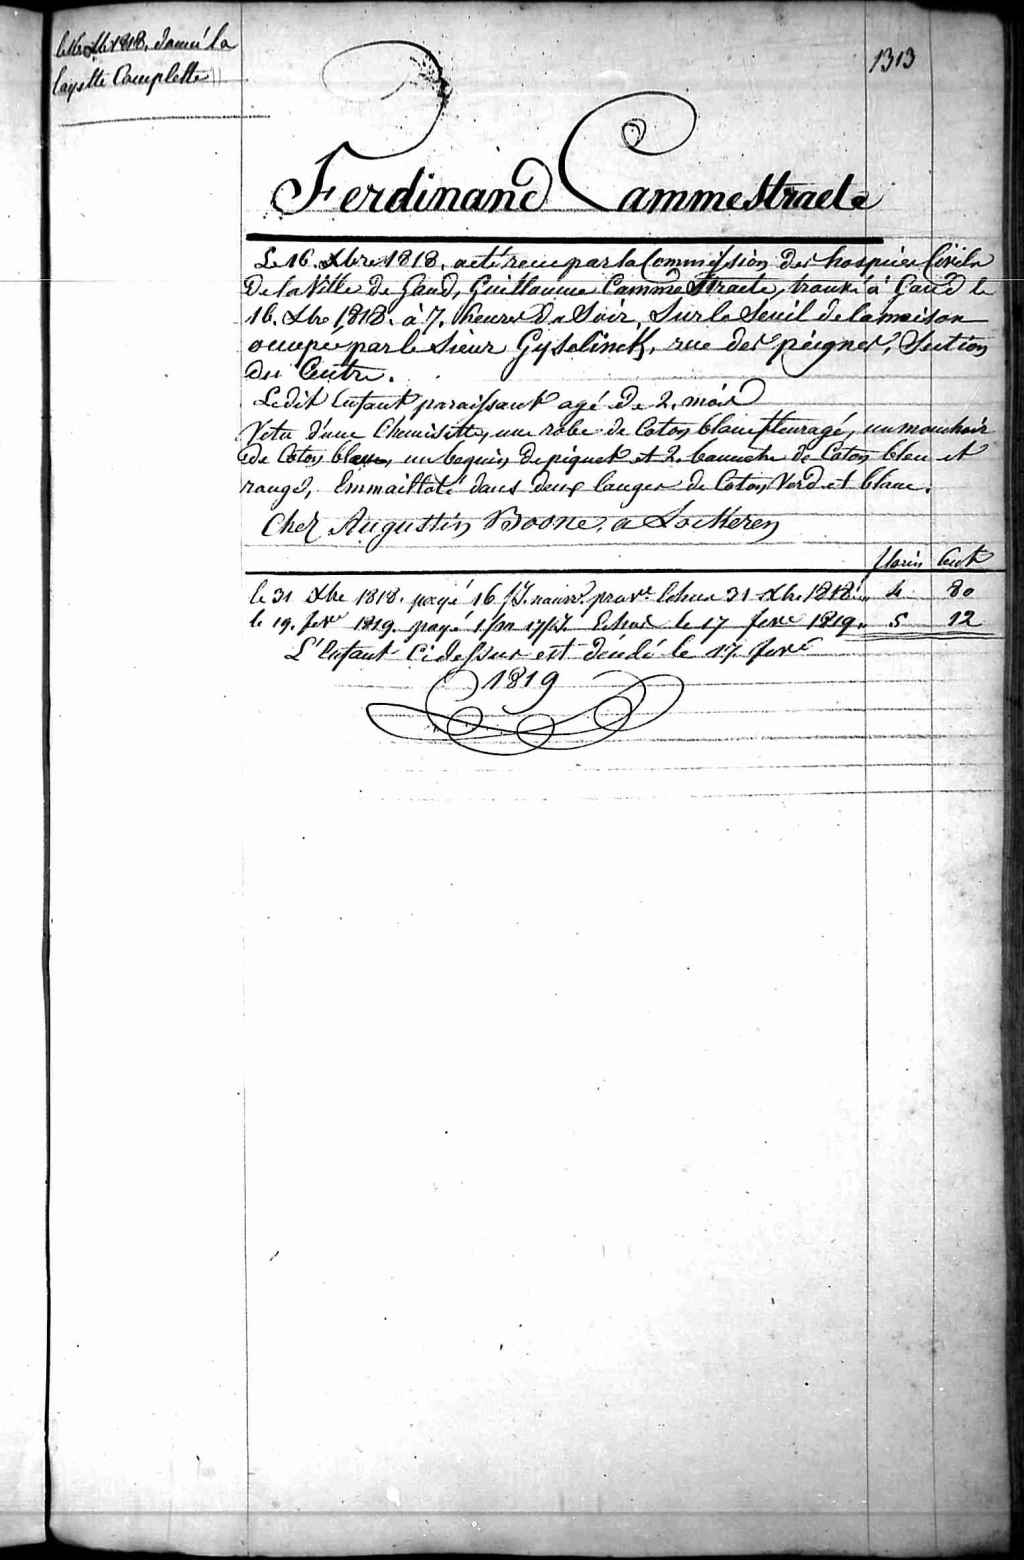 le 16 Xbre 1818. donné la
layette Complette
1313
Ferdinand Cammestraete
Le 16. Xbre 1818. a eté recu par la Commission des hospices Civils
de la Ville de Gand, Guillaume Cammestraete, trouvé à Gand le
16. Xbre 1818. à 7. heures du Soir, Sur le Seuil de la maison
occupé par le Sieur Gyselinck, rue des peignes, Section
du Centre.
Ledit Enfant paraissant agé de 2. mois
Vetu d'une Chemisette, une robe de Coton blanc fleuragé, un mouchoir
de Coton blanc, un beguin de piquet et 2. bonnets de Coton bleu et
rouge, Emmailloté dans deux langes de Coton Verd et blanc.
Chez Augustin Boone, a Lockeren
florin Cent
le 31 Xbre 1818. payé 16 js. nourr. prov.t Echus 31 Xbre 1818. 4 80
le 19. fevr 1819. payé 1 m 17 js Echus le 17 fevr 1819. 5 12
L'Enfant Cidessus est décédé le 17. fevr
1819